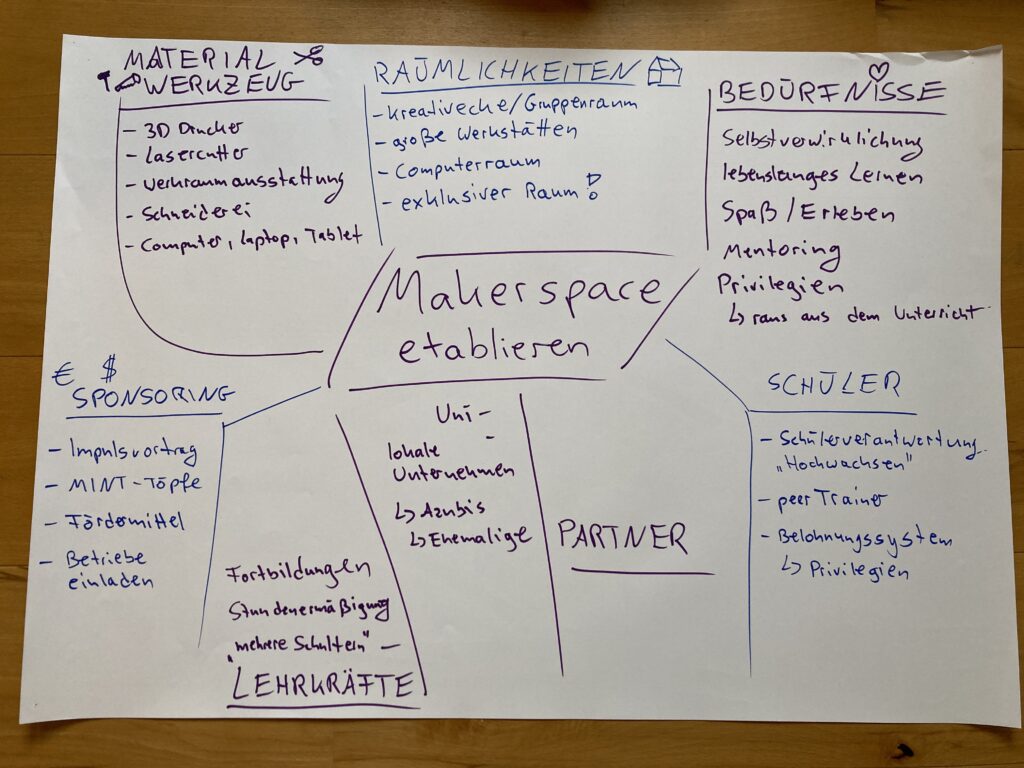 MATERIAL
WERKZEUG
- 3D Drucker
- Lasercutter
- Werkraumausstattung
- Schneiderei
- Computer, Laptop, Tablet
RÄUMLICHKEITEN
- Kreativecke/Gruppenraum
- große Werkstätten
- Computerraum
- exklusiver Raum!
BEDÜRFNISSE
Selbstverwirklichung
lebenslanges Lernen
Spaß/Erleben
Mentoring
Privilegien
↳ raus aus dem Unterricht
Makerspace
etablieren
€ $
SPONSORING
- Impulsvortrag
- MINT-Töpfe
- Fördermittel
- Betriebe
einladen
Fortbildungen
Stundenermäßigung
"mehrere Schultern" -
LEHRKRÄFTE
Uni -
-
lokale
Unternehmen
↳ Azubis
↳ Ehemalige
PARTNER
SCHÜLER
- Schülerverantwortung
"Hochwachsen"
- peer Trainer
- Belohnungssystem
↳ Privilegien